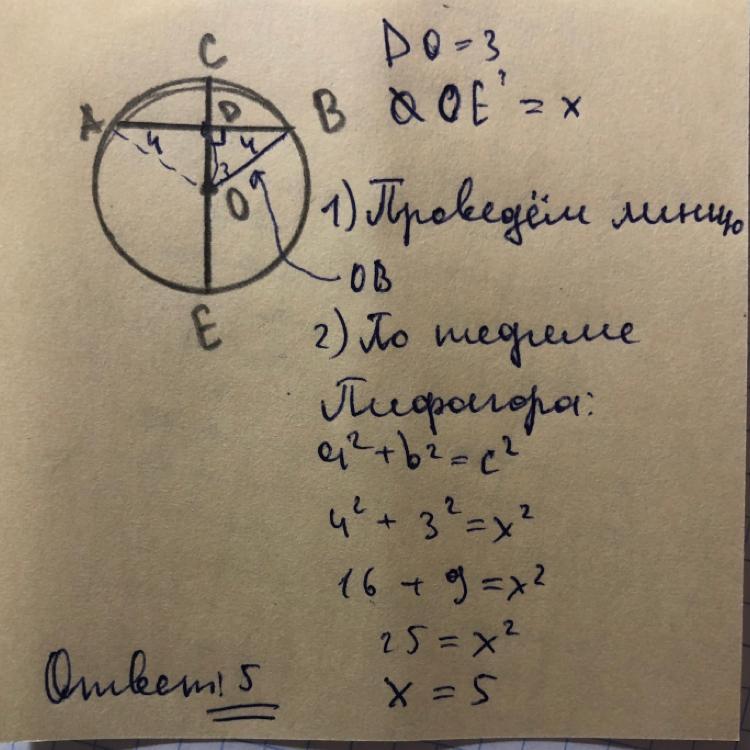 C
A
D
B
4
4
3
O
E
DO = 3
OE? = x
1) Проведём линию
OB
2) По теореме
Пифагора:
a² + b² = c²
4² + 3² = x²
16 + 9 = x²
25 = x²
x = 5
Ответ: 5